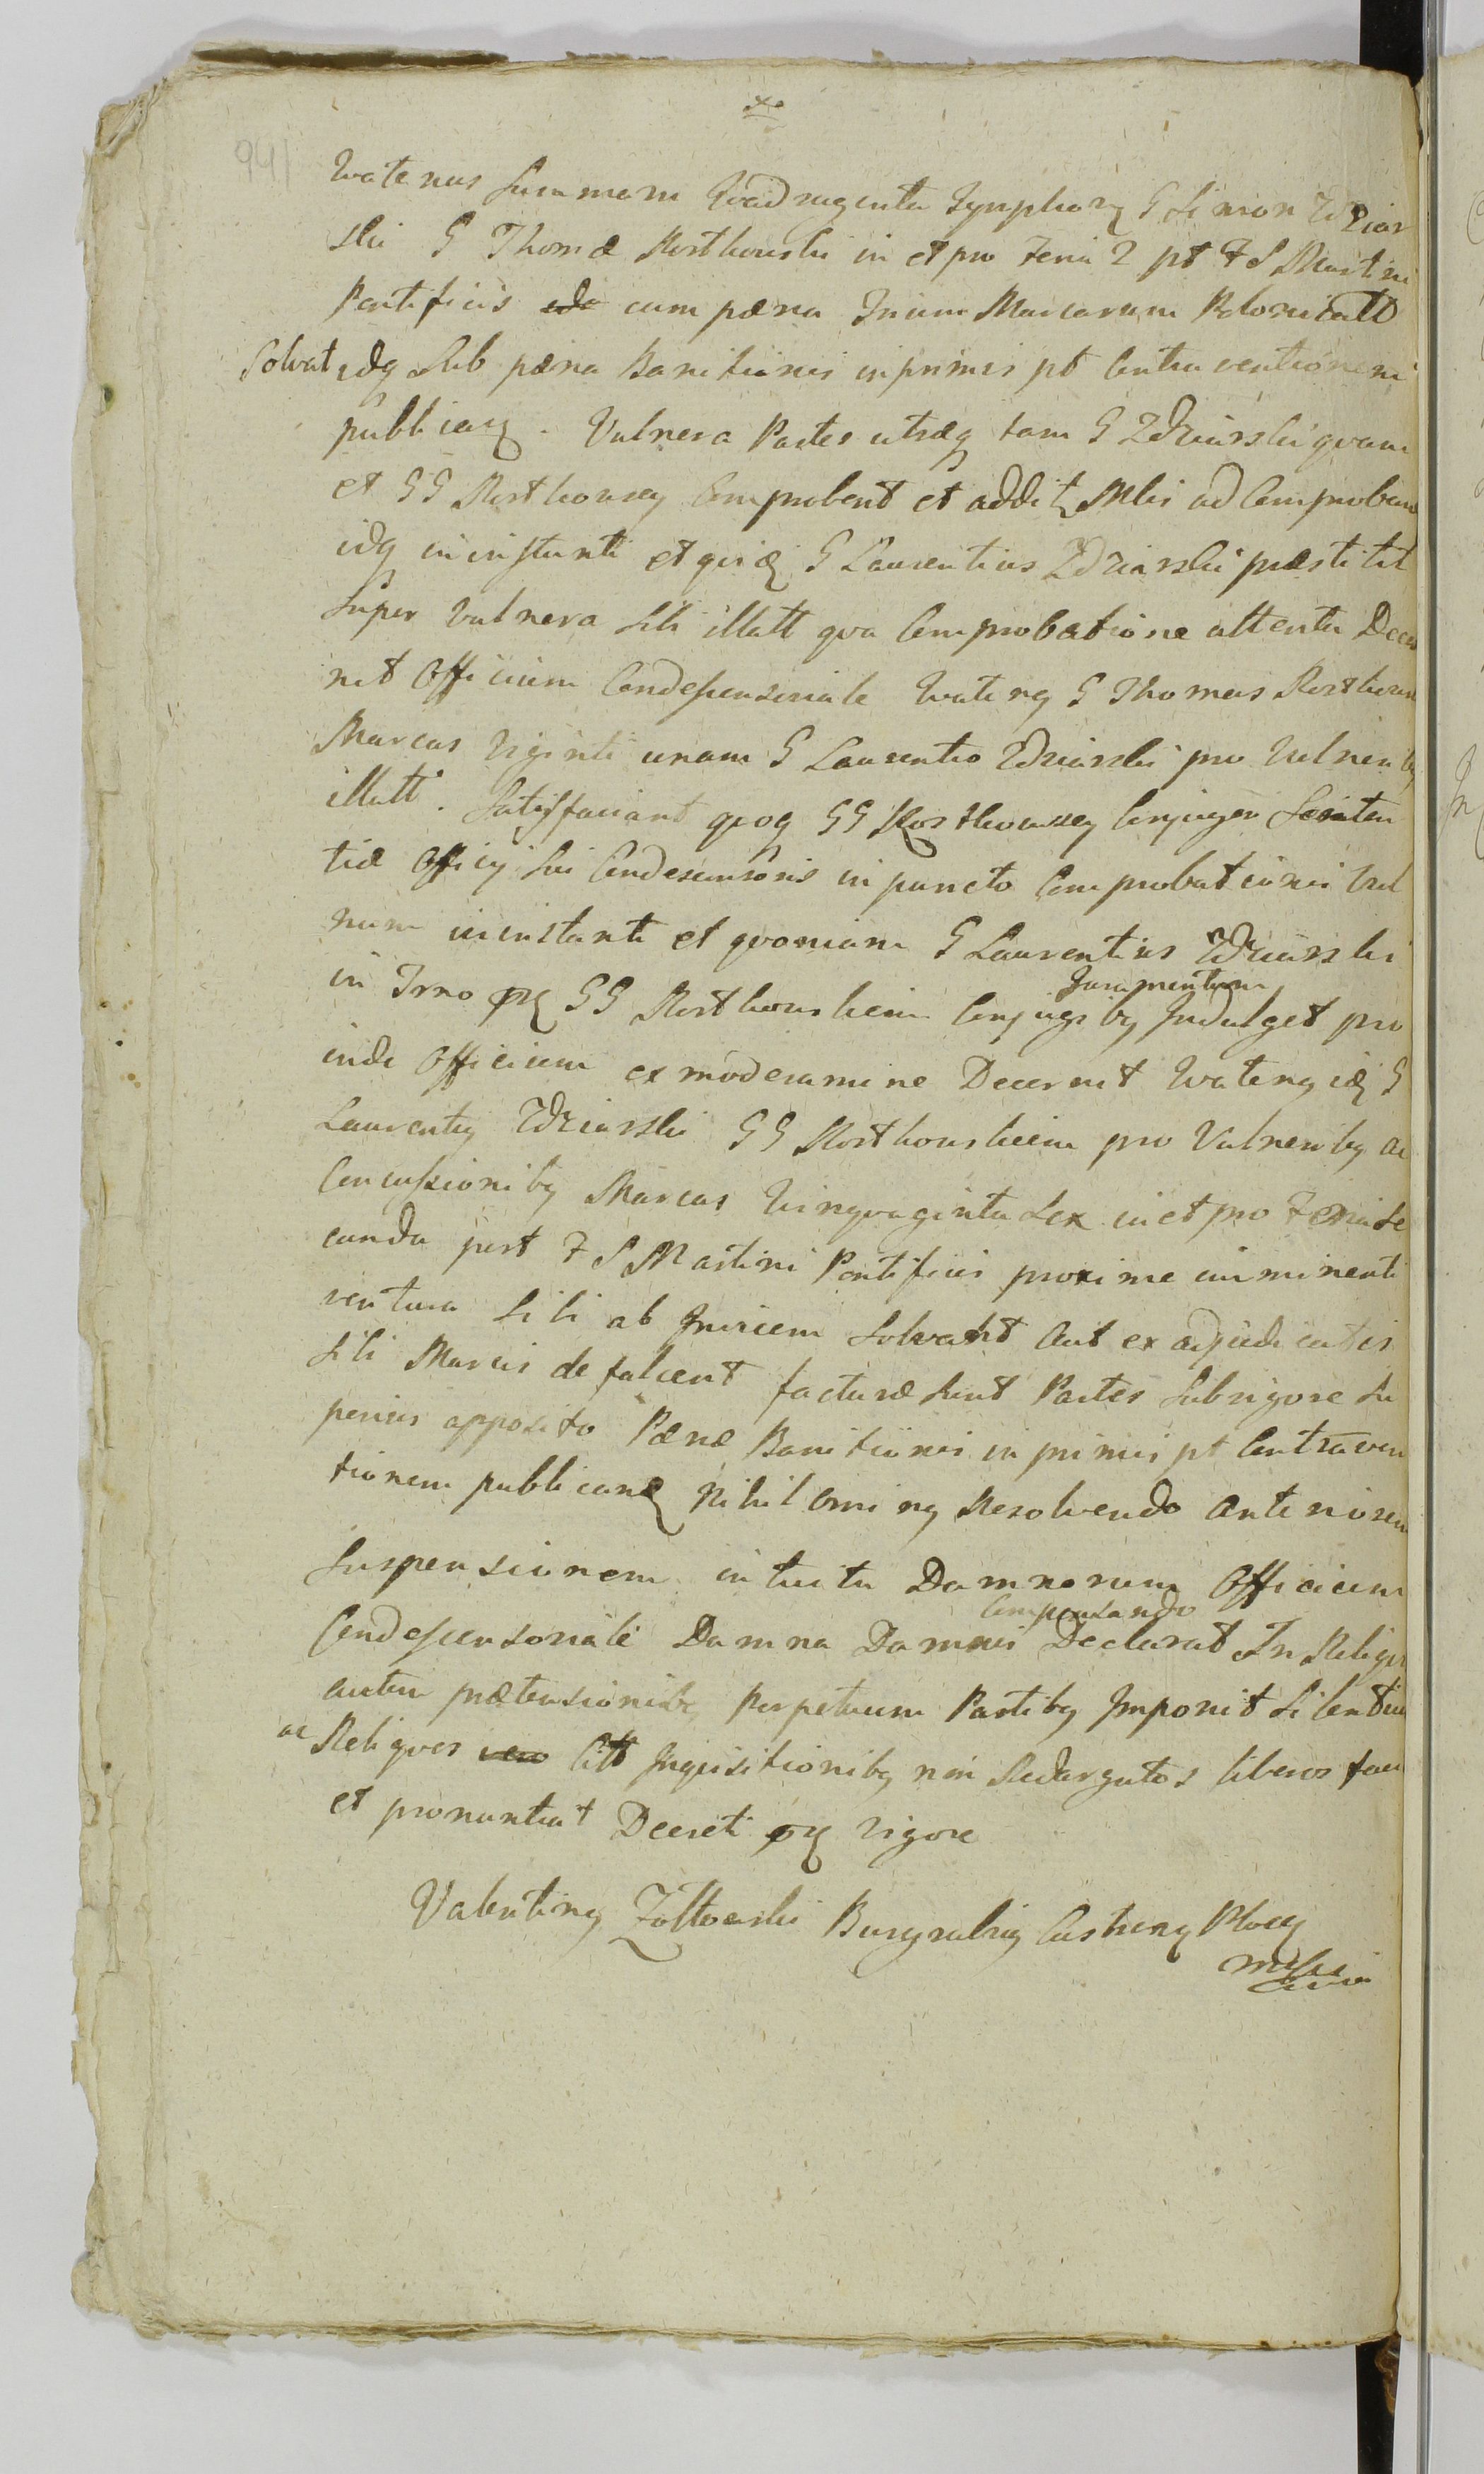 94
Vatenus Summam Quadringenta Symplarq G Simon Zdziar
ski G Thomæ Kostkowski in et pro Feria 2 pt F S Martini
Pontificis cum pæna Trium Marcarum Polonicall
Solvat idq Sub pæna Banitionis inprimis pt Contraventionem
publicaq. Vulnera Partes utræq tam G Zdziarski quam
et GG Kostkowscy Comprobent et addit Mbr ad Comproban
idq in instanti et quiq G Laurentius Zdziarski præstitit
Super Vulnera Sibi illatt qva Comprobatione attenta Decer
nit Officium Condescensoriale Vatenq G Thomas Kostkows
Marcas Viginti unam G Laurentio Zdziarski pro Vulneribq
illatt. Satisfaciant qvoq GG Kostkowscy Conjuges Senten
tiæ Officij Sui Condescensoris in puncto Comprobationis Vul
num in instanti et qvoniam G Laurentius Zdziarski
in Trno GG Kostkowskiem Conjugibq Juramentum Indulget pro
inde Officium ex moderamine Decernit Vatenq idq G
Laurentiq Zdziarski GG Kostkowskiem pro Vulneribq ac
Concussionibq Marcas Qvinqvaginta Sex in et pro Feria Se
cunda post F S Martini Pontificis proxime imminenti
ventura Sibi ab Invicem Solvant Aut ex adjudicatis
Sibi Marcis defalcent facturæ Sunt Partes Sub rigore Su
perius apposito Pænæ Banitionis inprimis pt Contraven
tionem publicanq Nihilominq Resolvendo Anteriorem
Suspensionem intuitu Damnorum Officium
Condescensoriale Damna Damnis Compensando Declarat In Reliqvi
autem prætensionibq Perpetuum Partibq Imponit Silentiu
ac Reliqvos Citt Inqvisitionibq non Redargutos liberos faci
et pronuntiat Decreti vigore
Valentinq Żółtowski Burgrabiq Castrenq Plocq
mpp